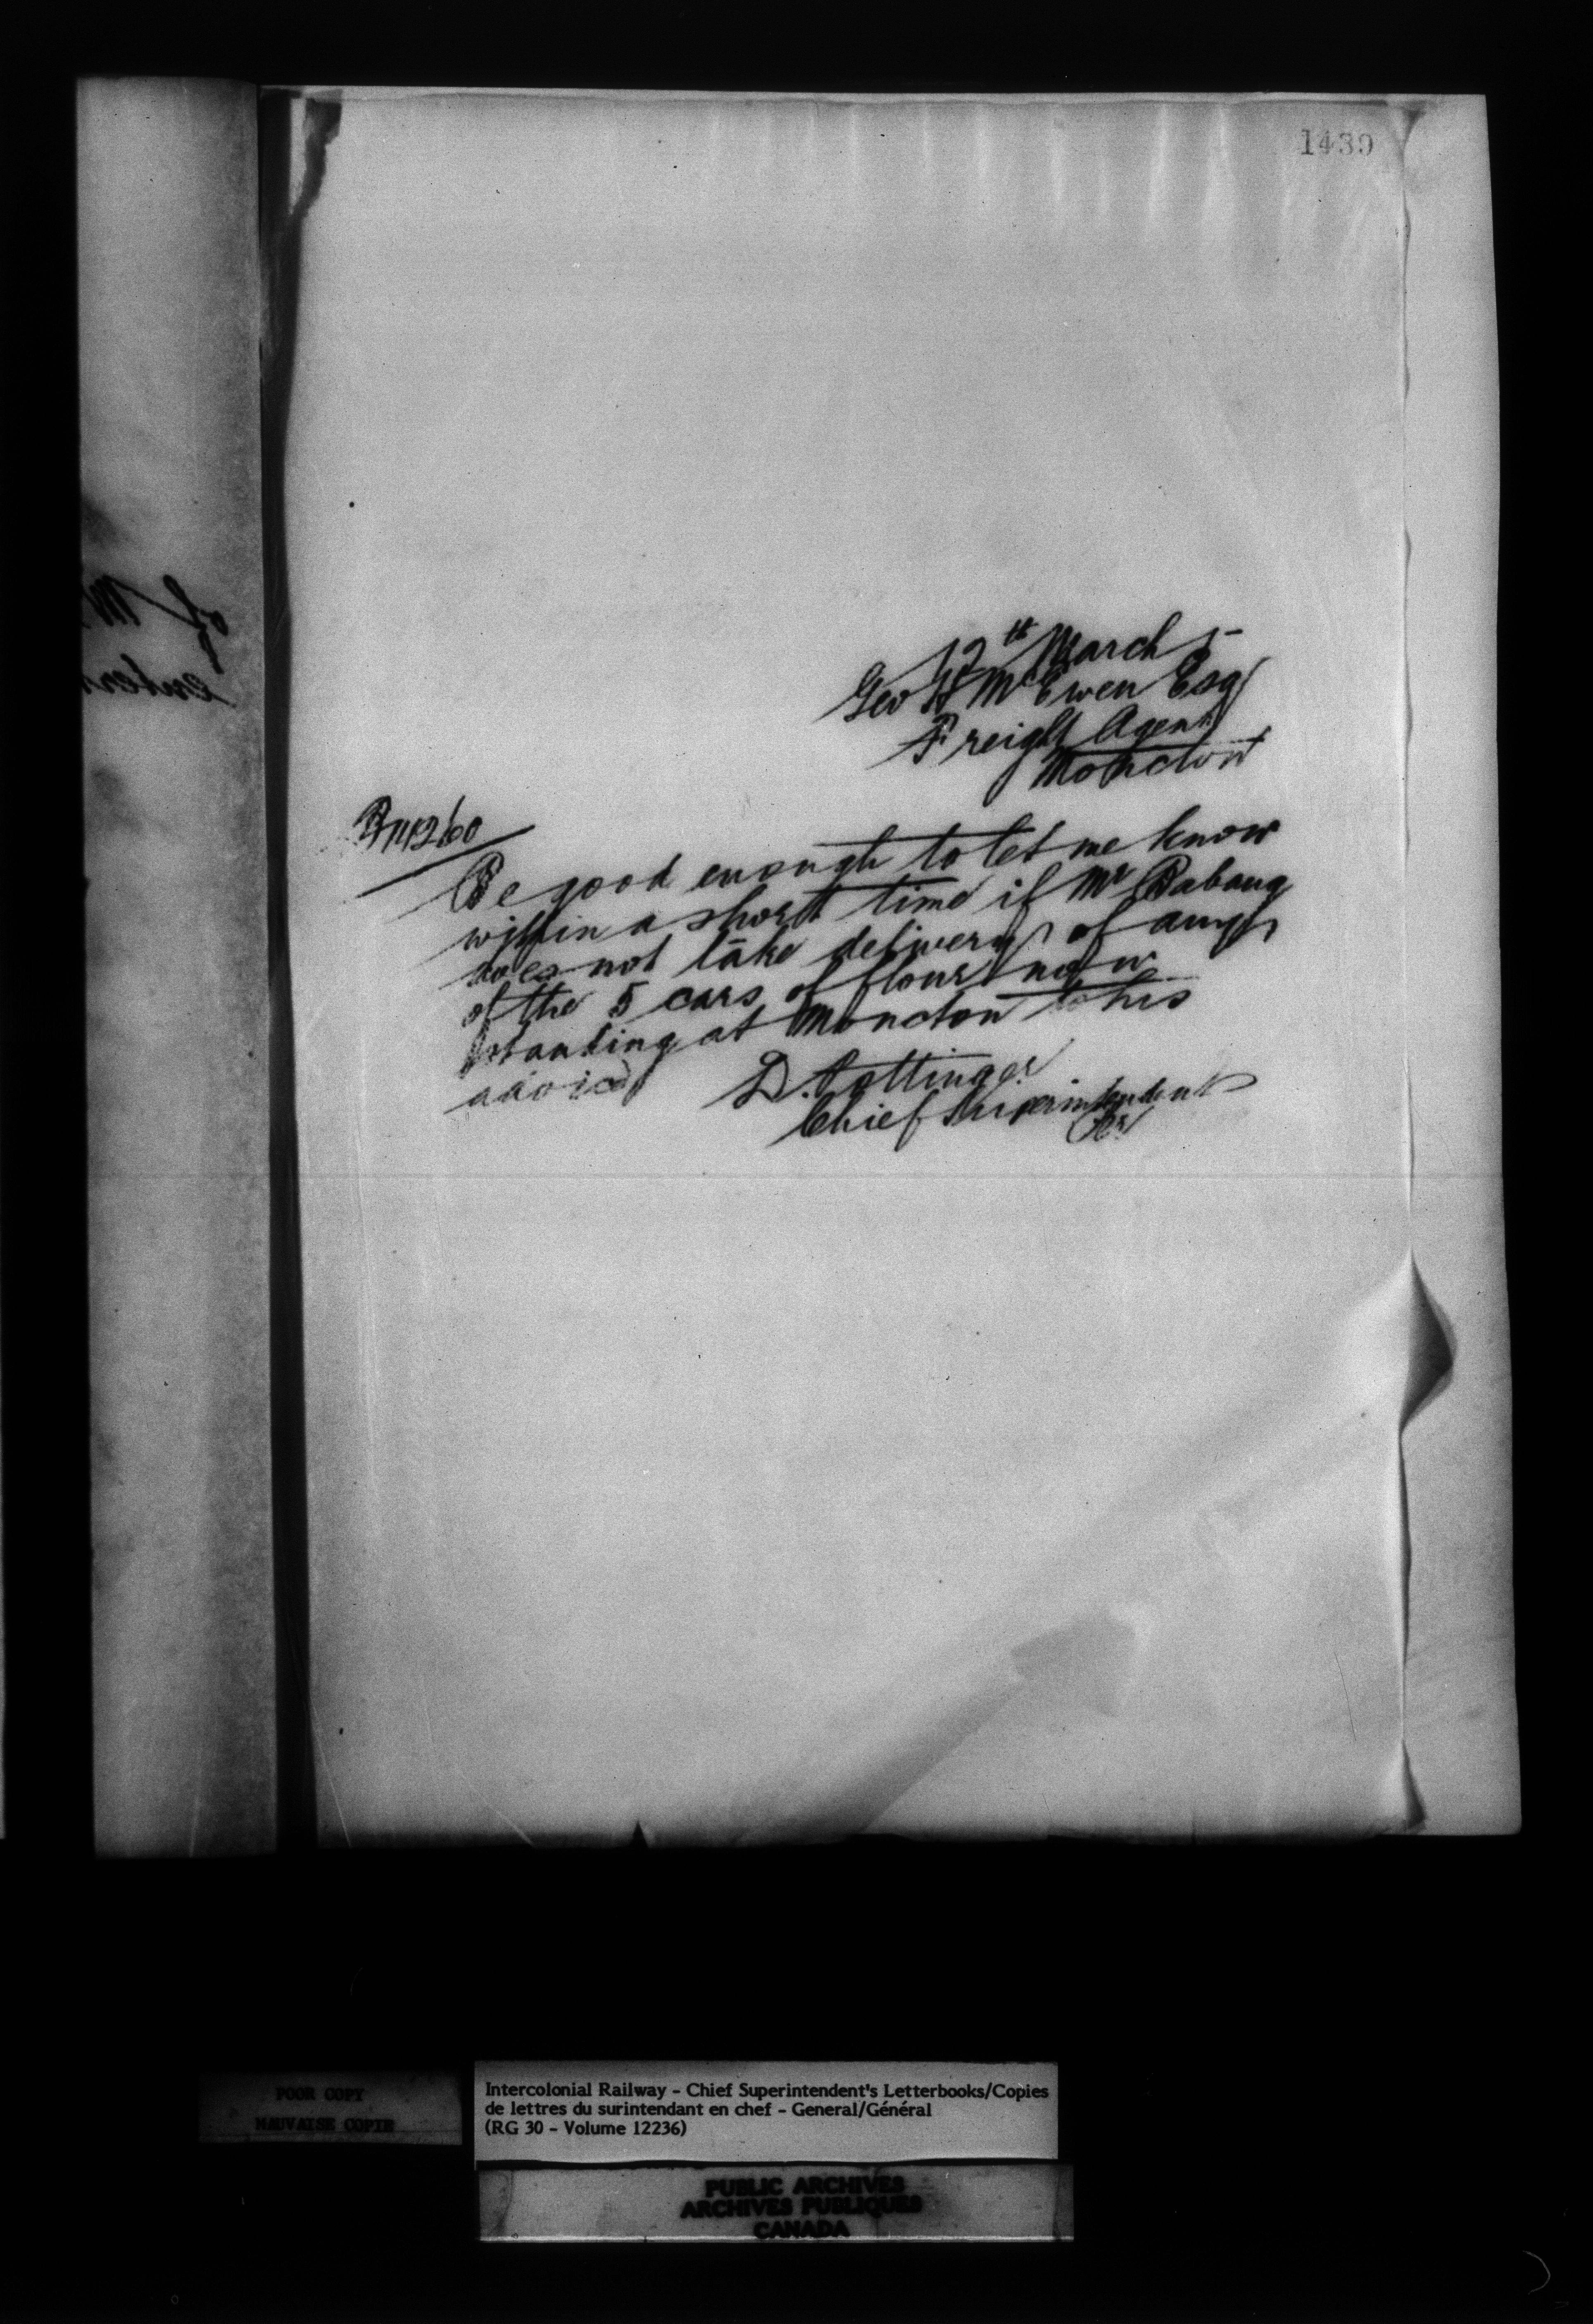 1439
12th March 5
Geo W McEwen Esq
Freight Agent
Moncton
Be good enough to let me know
within a short time if Mr Babang
does not take delivery of any
of the 5 cars of flour now
standing at Moncton to his
advice
D. Pottinger
Chief Superintendent
of M
POOR COPY
MAUVAISE COPIE
Intercolonial Railway - Chief Superintendent's Letterbooks/Copies
de lettres du surintendant en chef - General/Général
(RG 30 - Volume 12236)
PUBLIC ARCHIVES
ARCHIVES PUBLIQUES
CANADA